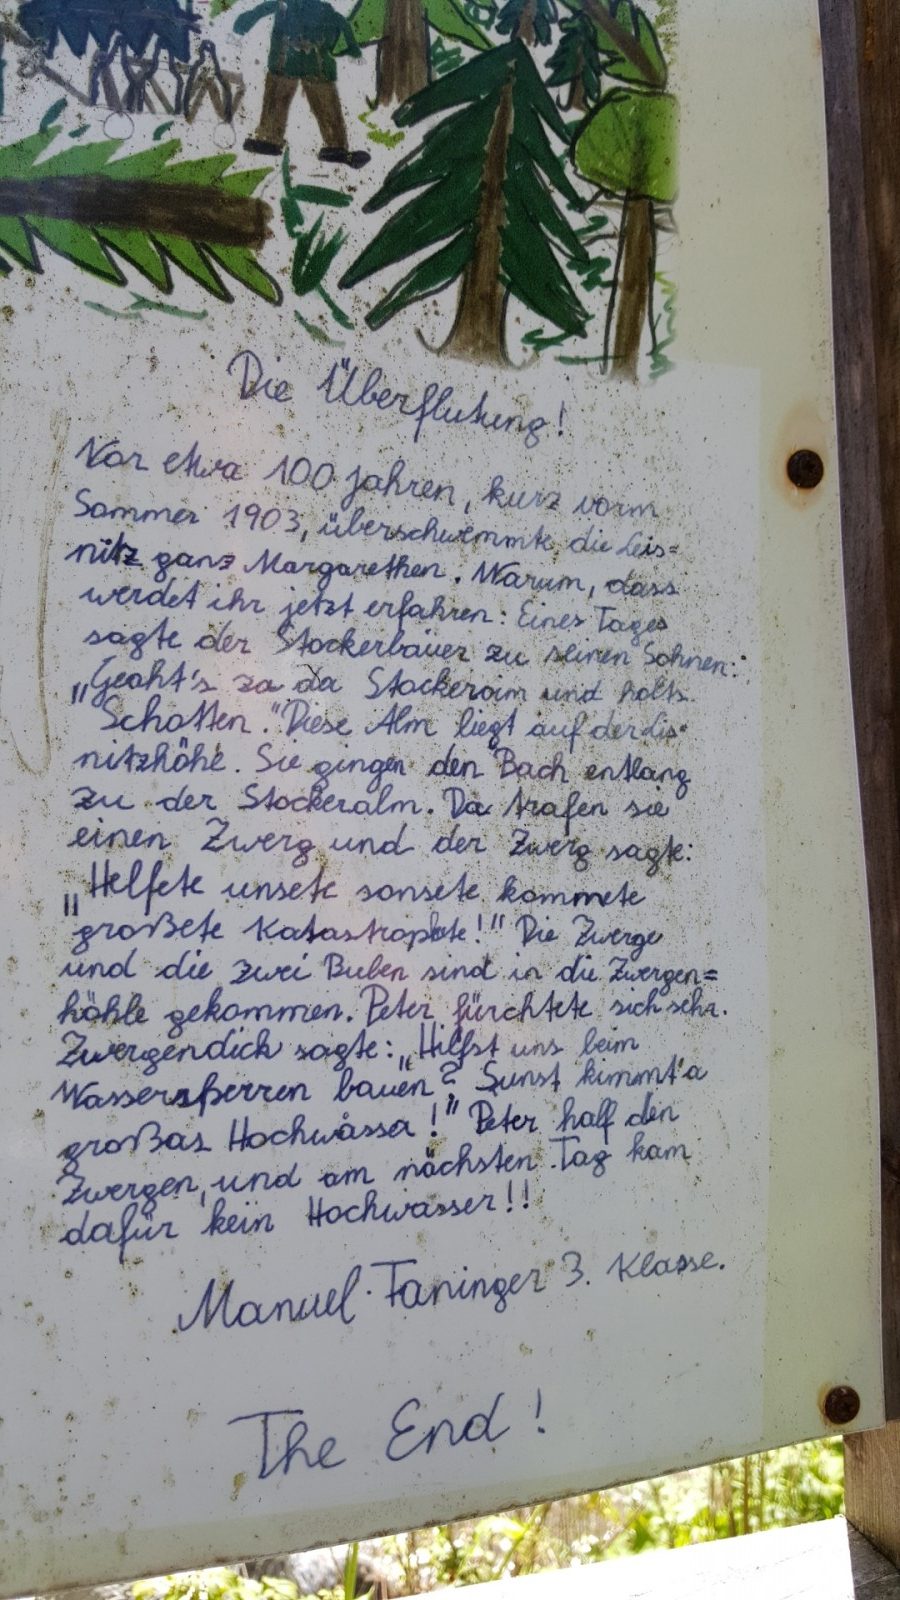 Die Überflutung!
Vor etwa 100 Jahren, kurz vorm
Sommer 1903, überschwemmte die Leis=
nitz ganz Margarethen. Warum, dass
werdet ihr jetzt erfahren: Eines Tages
sagte der Stockerbauer zu seinen Söhnen:
„Geaht's za da Stockeroim und holts
Schotten." Diese Alm liegt auf der Lis-
nitzhöhe. Sie gingen den Bach entlang
zu der Stockeralm. Da trafen sie
einen Zwerg und der Zwerg sagte:
„Helfete unsete sonsete kommete
großete Katastrophete!" Die Zwerge
und die zwei Buben sind in die Zwergen=
höhle gekommen. Peter fürchtete sich sehr.
Zwergendick sagte: „Hilfst uns beim
Wassersperren bauen? Sunst kimmt a
großas Hochwåssa!" Peter half den
Zwergen, und am nächsten Tag kam
dafür kein Hochwasser!!
Manuel Faninger 3. Klasse.
The End!